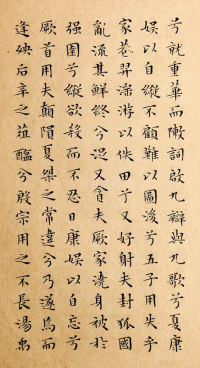 兮就重華而敶詞啟九辯與九歌兮夏康
娛以自縱不顧難以圖後兮五子用失乎
家巷羿淫游以佚田兮又好射夫封狐國
亂流其鮮終兮浞又貪夫厥家澆身被於
强圉兮縱欲殺而不忍日康娛以自忘兮
厥首用夫顛隕夏桀之常違兮乃遂焉而
逢殃后辛之菹醢兮殷宗用之不長湯禹